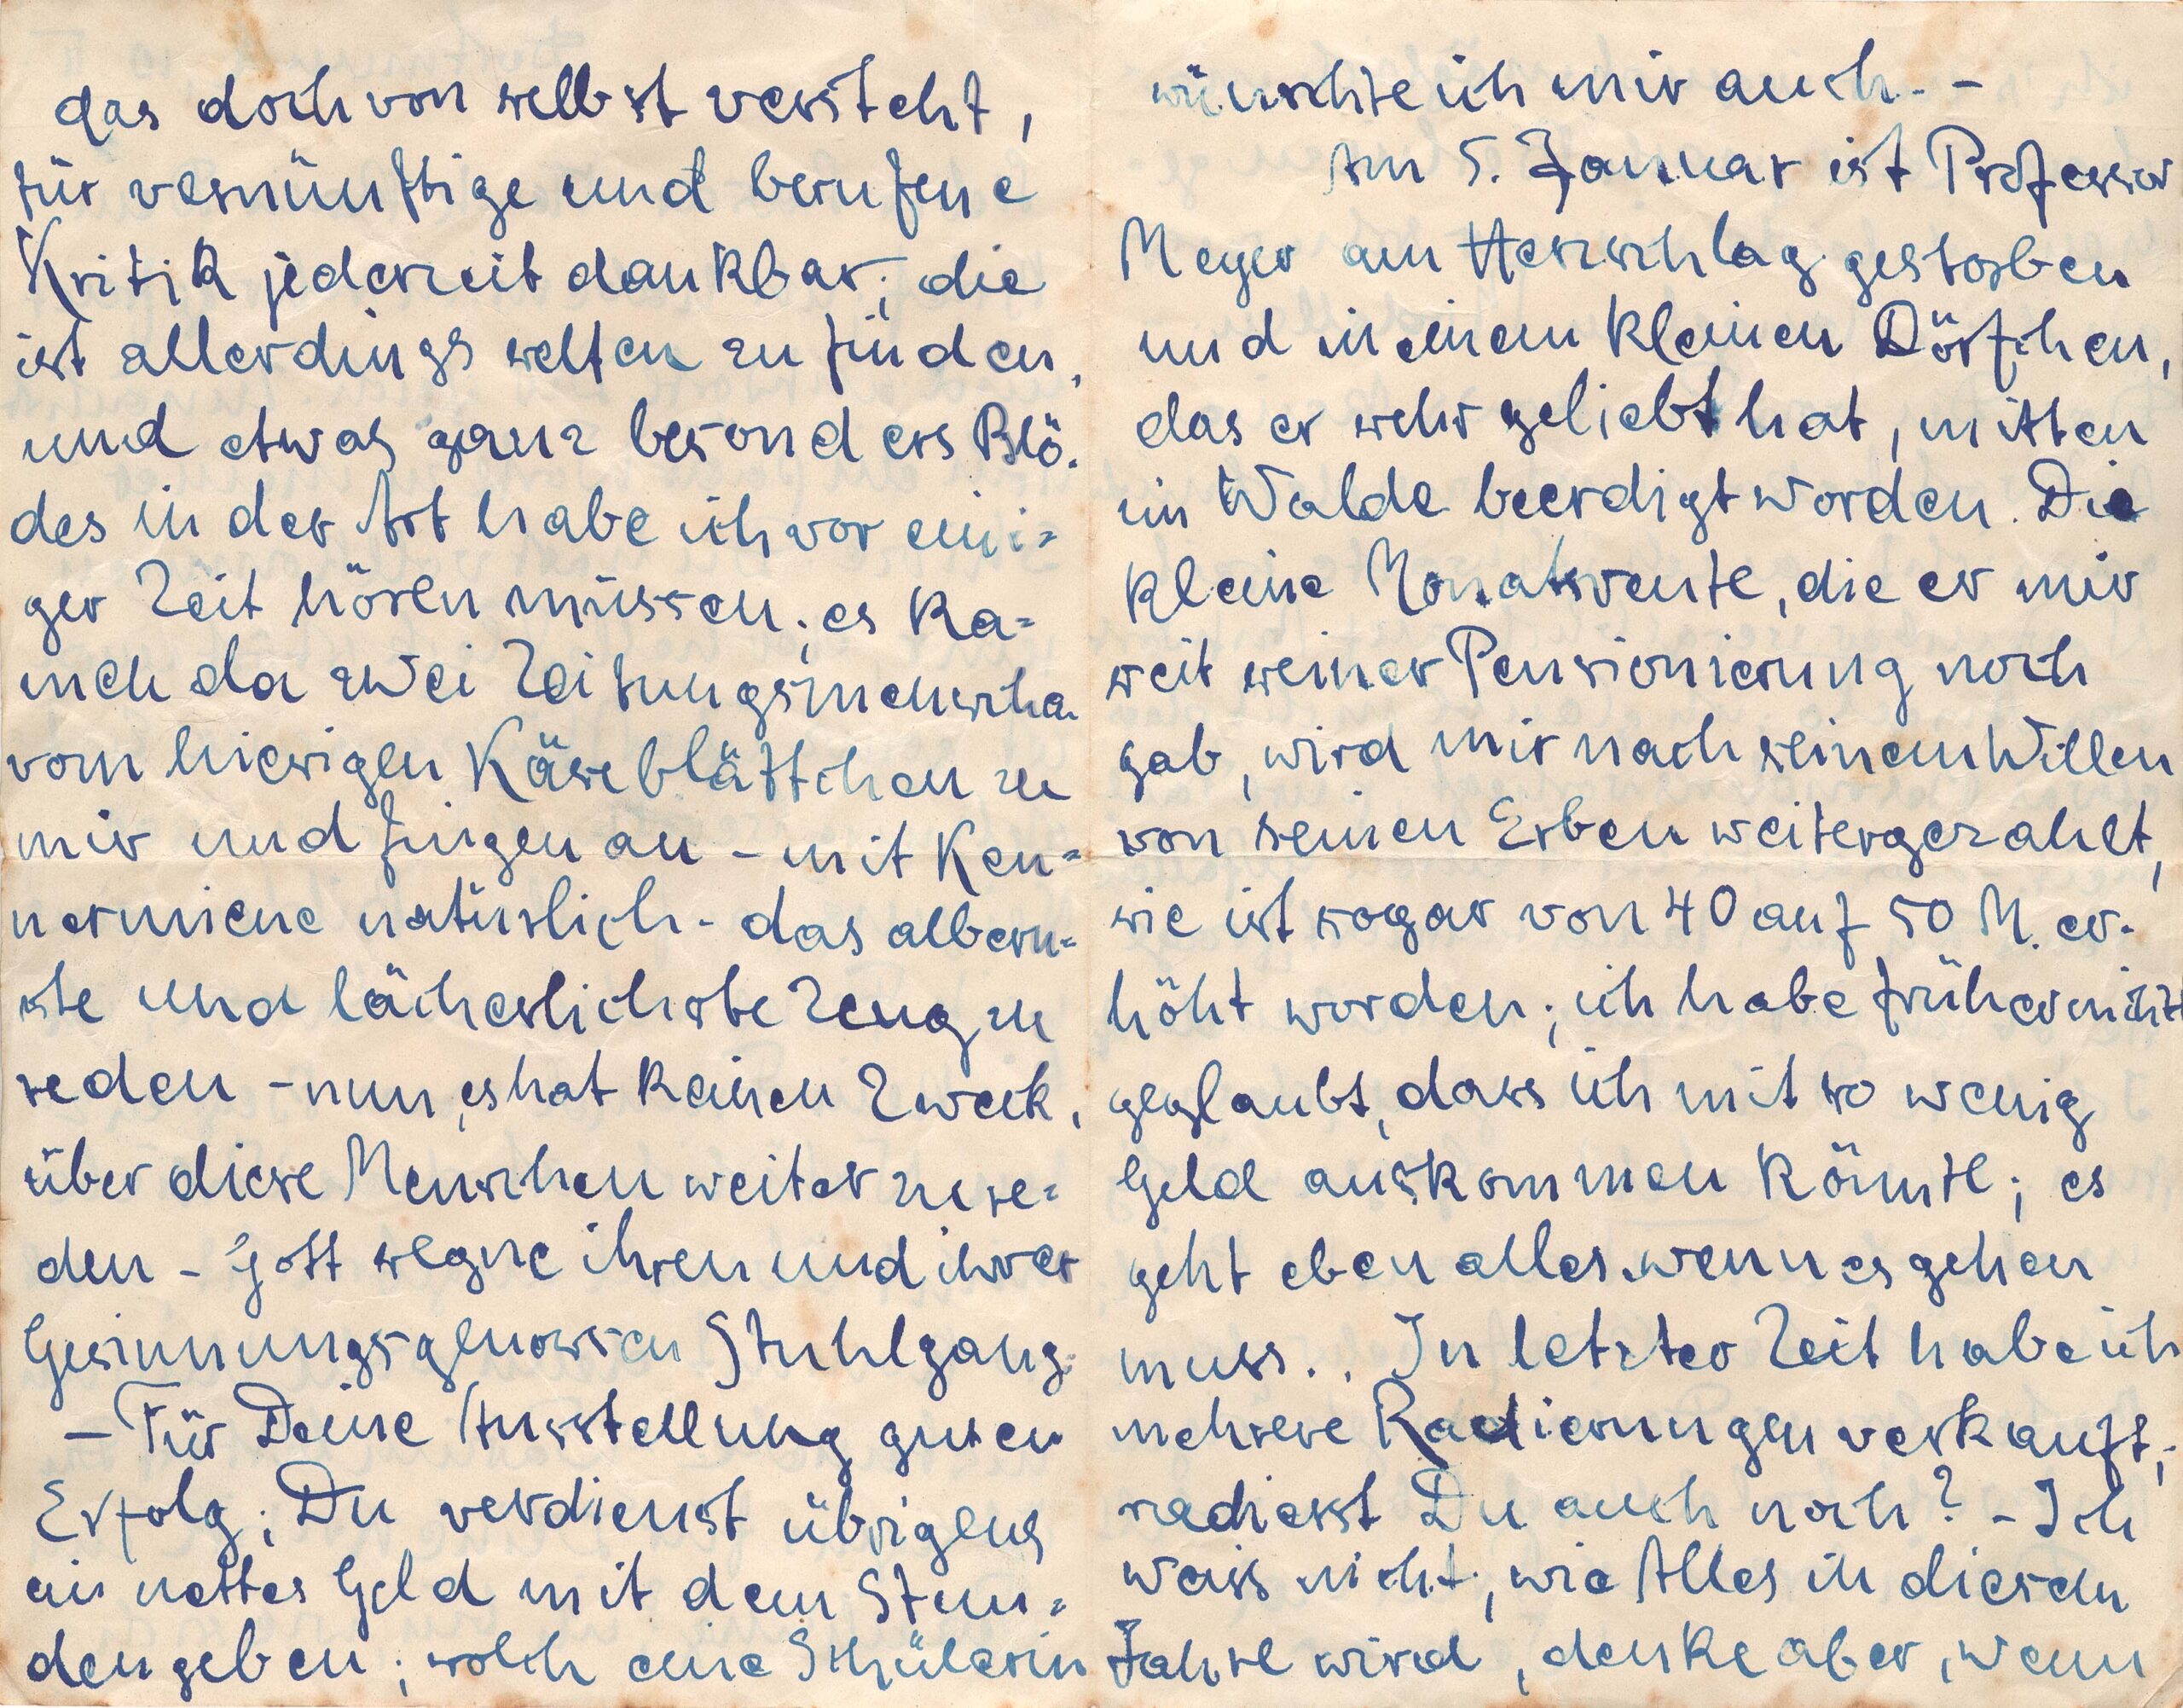 das doch von selbst versteht,
für vernünftige und berufene
Kritik jederzeit dankbar; die
ist allerdings selten zu finden,
und etwas ganz besonders Blö-
des in der Art habe ich vor eini=
ger Zeit hören müssen; es ka=
men da zwei Zeitungsmenscha
vom hiesigen Käseblättchen zu
mir und fingen an - mit Ken=
nermiene natürlich - das albern=
ste und lächerlichste Zeug zu
reden - nun, es hat keinen Zweck,
über diese Menschen weiter zu re=
den - Gott segne ihren und ihrer
Gesinnungsgenossen Stuhlgang.
- Für Deine Ausstellung guten
Erfolg; Du verdienst übrigens
ein nettes Geld mit dem Stun=
dengeben; solch eine Schülerin
wünschte ich mir auch. -
Am 5. Januar ist Professor
Meyer am Herzschlag gestorben
und in einem kleinen Dörfchen,
das er sehr geliebt hat, mitten
im Walde beerdigt worden. Die
kleine Monatsrente, die er mir
seit seiner Pensionierung noch
gab, wird mir nach seinem Willen
von seinen Erben weitergezahlt,
sie ist sogar von 40 auf 50 M. er-
höht worden; ich habe früher nicht
geglaubt, dass ich mit so wenig
Geld auskommen könnte; es
geht eben alles, wenn es gehen
muss.. In letzter Zeit habe ich
mehrere Radierungen verkauft;
radierst Du auch noch? - Ich
weiss nicht, wie Alles in diesem
Jahre wird, denke aber, wenn